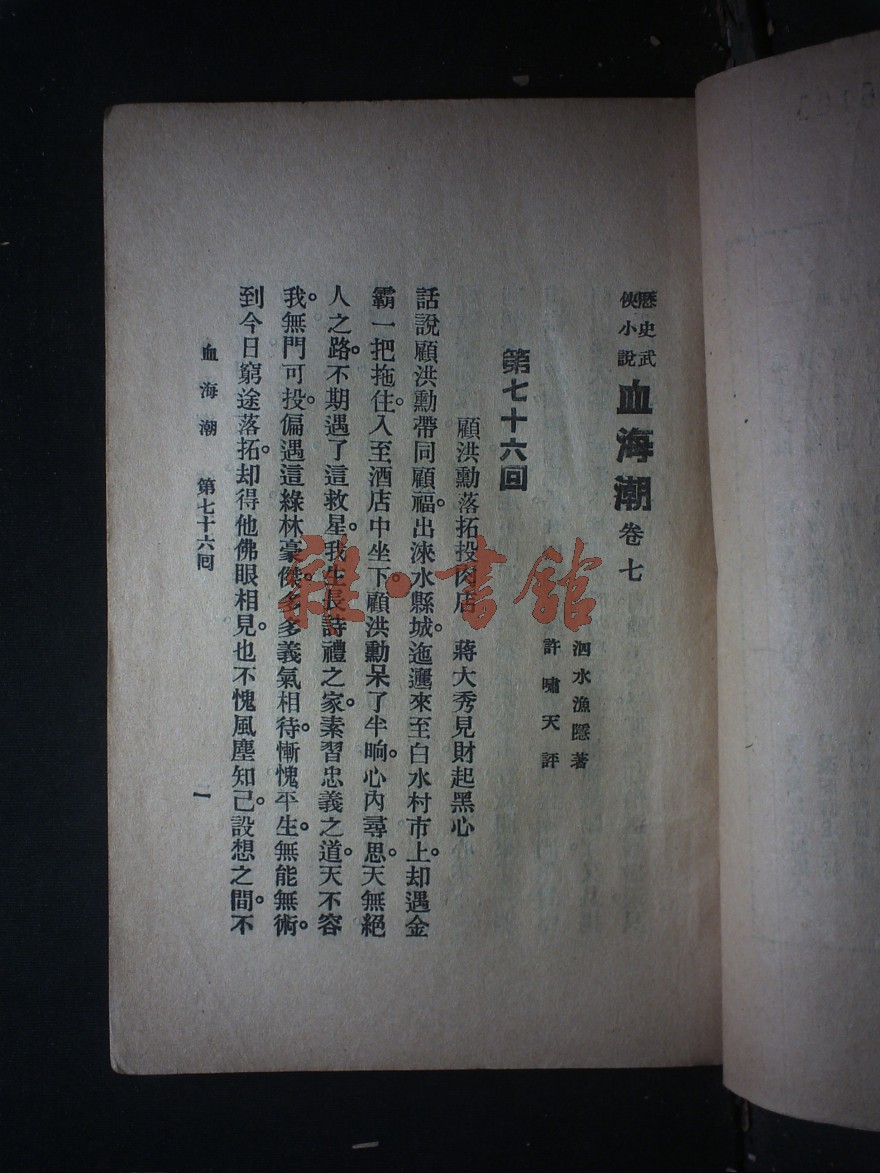 歷史武
俠小說
血海潮 卷七
泗水漁隱著
許嘯天評
第七十六回
顧洪勳落拓投肉店 蔣大秀見財起黑心
話說顧洪勳帶同顧福。出淶水縣城。迤邐來至白水村市上。却遇金
霸一把拖住。入至酒店中坐下。顧洪勳呆了半晌。心內尋思。天無絕
人之路。不期遇了這救星。我生長詩禮之家。素習忠義之道。天不容
我。無門可投。偏遇這綠林豪傑。多多義氣相待。慚愧平生。無能無術。
到今日窮途落拓。却得他佛眼相見。也不愧風塵知己。設想之間。不
血海潮 第七十六回
一
雜·書館